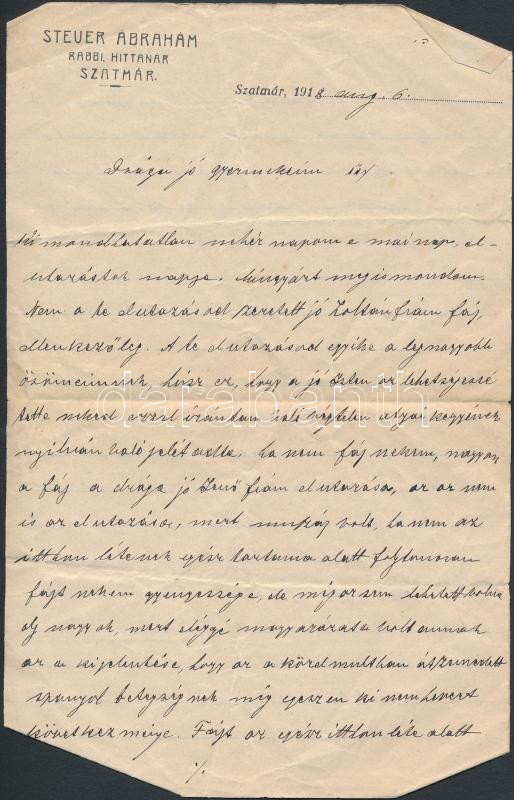 STEUER ÁBRAHÁM
RABBI, HITTANÁR
SZATMÁR.
Szatmár, 1918 aug. 6.
Drága jó gyermekeim
Kimondhatatlan nehér napom e mai nap, el-
utazástok napja. Mingyárt megis mondom.
Nem a te elutazásod szeretett jó Zoltán fiam fáj,
ellenkezőleg. A te elutazásod egyike a legnagyobb
örömeimnek, hisz ez, hogy a jó Isten ez lehetségessé
tette neked ezzel irántam való végtelen atyai kegyének
nyilván való jelét adta, ha nem fáj nekem, nagyon
a fáj a drága jó Jenő fiam elutazása, az az nem
is az elutazása, mert muszáj volt, ha nem az
itthon létének egész tartama alatt folytonosan
fájt nekem gyengessége, de még az sem lehetett volna
oly nagyok, mert eléggé magyarázata volt annak
az a kijelentése, hogy az a közelmultban átszenvedett
spanyol betegségnek még egészen ki nem hevert
következménye. Fájt az egész itthon léte alatt
./.
darabanth